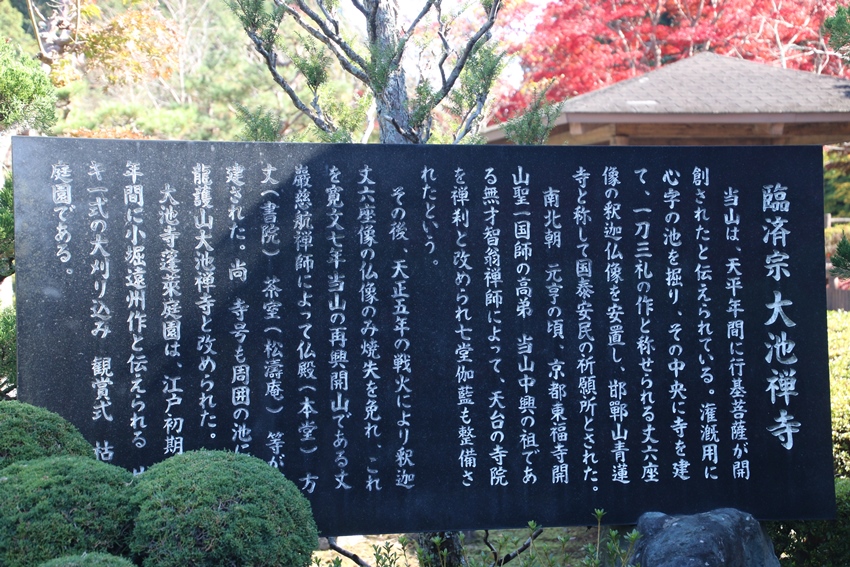 臨済宗 大池禅寺
当山は、天平年間に行基菩薩が開
創されたと伝えられている。灌漑用に
心字の池を掘り、その中央に寺を建
て、一刀三礼の作と称せられる丈六座
像の釈迦仏像を安置し、邯鄲山青蓮
寺と称して国泰安民の祈願所とされた。
南北朝 元亨の頃、京都東福寺開
山聖一国師の高弟 当山中興の祖であ
る無才智翁禅師によって、天台の寺院
を禅刹と改められ七堂伽藍も整備さ
れたという。
その後、天正五年の戦火により釈迦
丈六座像の仏像のみ焼失を免れ、これ
を寛文七年当山の再興開山である丈
巌慈航禅師によって仏殿(本堂) 方
丈(書院) 茶堂(松濤庵) 等が
建された。尚 寺号も周囲の池に
龍護山大池禅寺と改められた。
大池寺蓬莱庭園は、江戸初期
年間に小堀遠州作と伝えられる
キ一式の大刈り込み 観賞式 枯
庭園である。